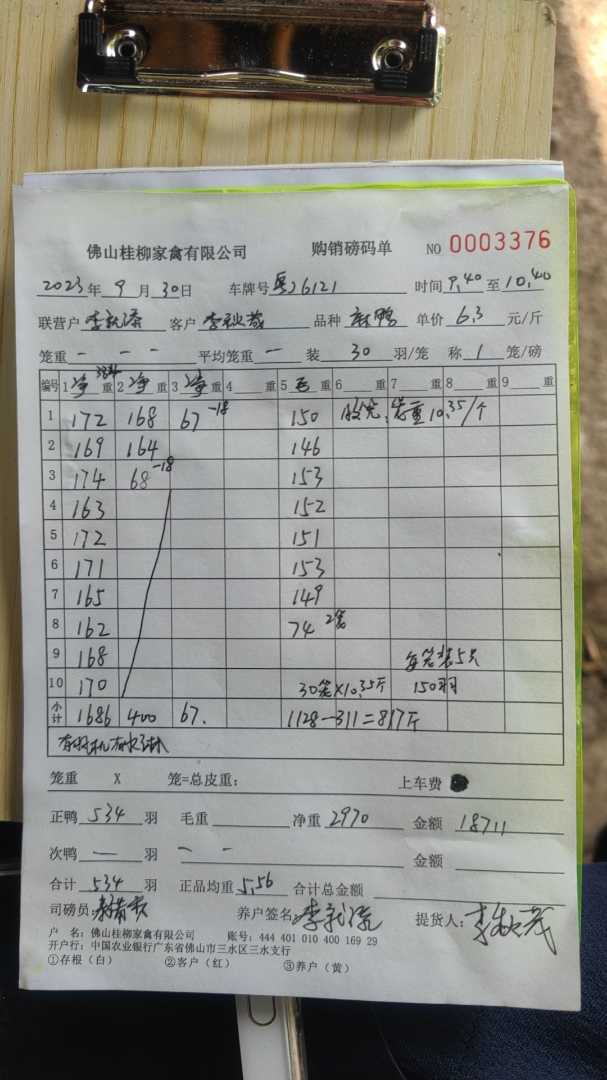 佛山桂柳家禽有限公司 购销磅码单 NO 0003376
2023年 9月 30日 车牌号 粤J26121 时间 9.40 至 10.40
联营户 李新添 客户 李秋茂 品种 麻鸭 单价 6.3 元/斤
笼重 — — — 平均笼重 — 装 30 羽/笼 称 1 笼/磅
编号 1 净 384 重 2 净 重 3 净 重 4 重 5 毛 重 6 重 7 重 8 重 9 重
1 172 168 67 -18 150 胶笼,笼重10.35/个
2 169 164 146
3 174 68 -18 153
4 163 152
5 172 151
6 171 153
7 165 149
8 162 74 2笼
9 168 每笼装5只
10 170 30笼×10.35斤 150羽
小计 1686 400 67. 1128-311=817斤
笼重 X 笼=总皮重: 上车费
正鸭 534 羽 毛重 净重 2970 金额 18711
次鸭 — 羽 — — 金额
合计 534 羽 正品均重 5.56 合计总金额
司磅员: 养户签名 李新添 提货人: 李秋茂
户 名: 佛山桂柳家禽有限公司 账号: 444 401 010 400 169 29
开户行: 中国农业银行广东省佛山市三水区三水支行
①存根(白) ②客户(红) ③养户(黄)